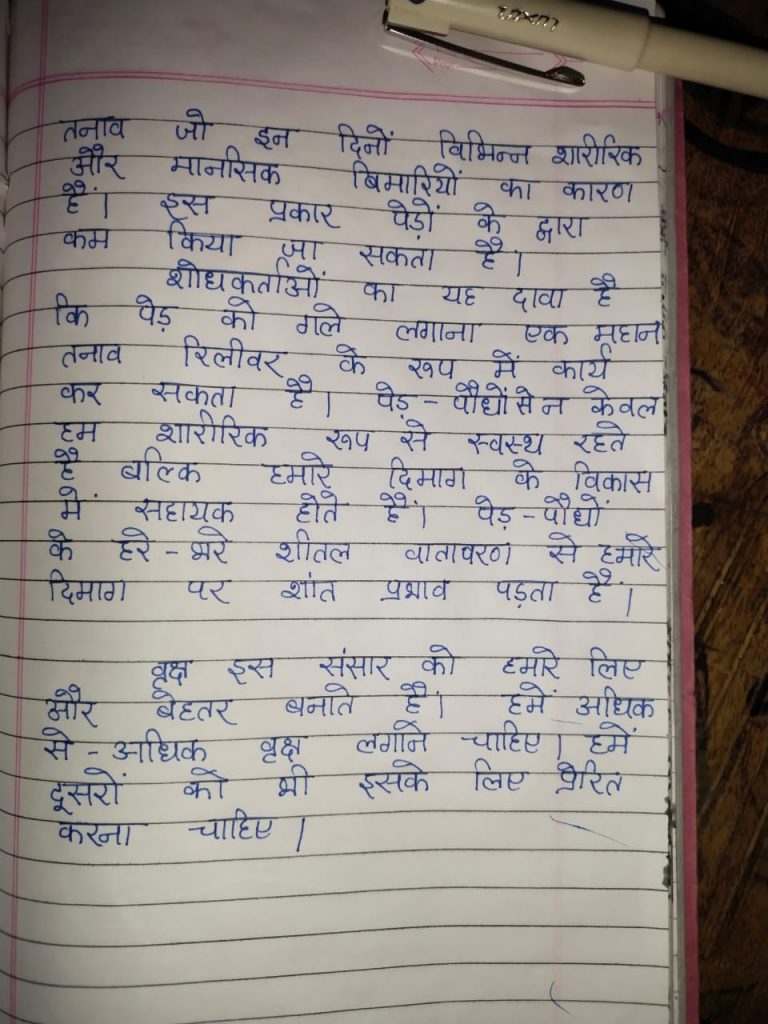 तनाव जो इन दिनों विभिन्न शारीरिक
और मानसिक बिमारियों का कारण
हैं। इस प्रकार पेड़ों के द्वारा
कम किया जा सकता है।
शोधकर्ताओं का यह दावा है
कि पेड़ को गले लगाना एक महान
तनाव रिलीवर के रूप में कार्य
कर सकता है। पेड़-पौधों से न केवल
हम शारीरिक रूप से स्वस्थ रहते
है बल्कि हमारे दिमाग के विकास
में सहायक होते हैं। पेड़-पौधों
के हरे-भरे शीतल वातावरण से हमारे
दिमाग पर शांत प्रभाव पड़ता है।
वृक्ष इस संसार को हमारे लिए
और बेहतर बनाते है। हमें अधिक
से-अधिक वृक्ष लगाने चाहिए। हमें
दूसरों को भी इसके लिए प्रेरित
करना चाहिए।